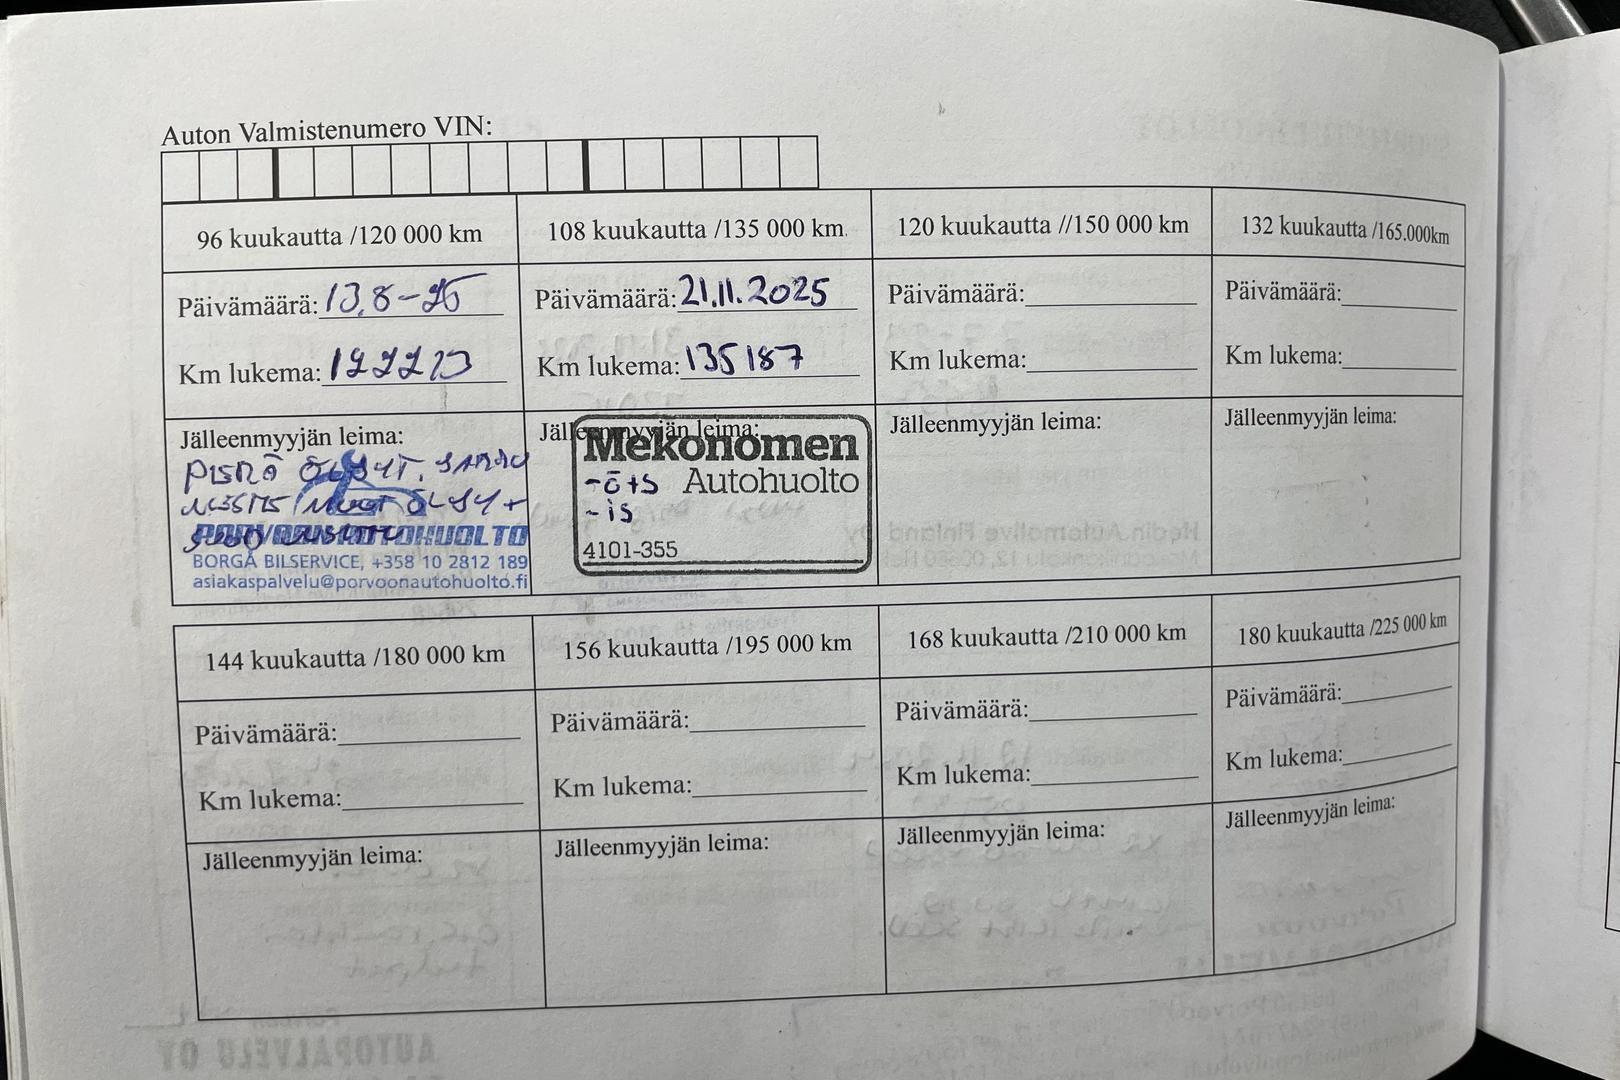 Auton Valmistenumero VIN:
96 kuukautta /120 000 km
108 kuukautta /135 000 km.
120 kuukautta //150 000 km
132 kuukautta /165.000km
Päivämäärä: 13.8-25
Päivämäärä: 21.11.2025
Päivämäärä:
Päivämäärä:
Km lukema:
Km lukema: 135187
Km lukema:
Km lukema:
Jälleenmyyjän leima:
Jälleenmyyjän leima:
Jälleenmyyjän leima:
Jälleenmyyjän leima:
PORVOON AUTOHUOLTO
BORGÅ BILSERVICE, +358 10 2812 189
asiakaspalvelu@porvoonautohuolto.fi
Mekonomen
-ö+s Autohuolto
-is
4101-355
144 kuukautta /180 000 km
156 kuukautta /195 000 km
168 kuukautta /210 000 km
180 kuukautta /225 000 km
Päivämäärä:
Päivämäärä:
Päivämäärä:
Päivämäärä:
Km lukema:
Km lukema:
Km lukema:
Km lukema:
Jälleenmyyjän leima:
Jälleenmyyjän leima:
Jälleenmyyjän leima:
Jälleenmyyjän leima: